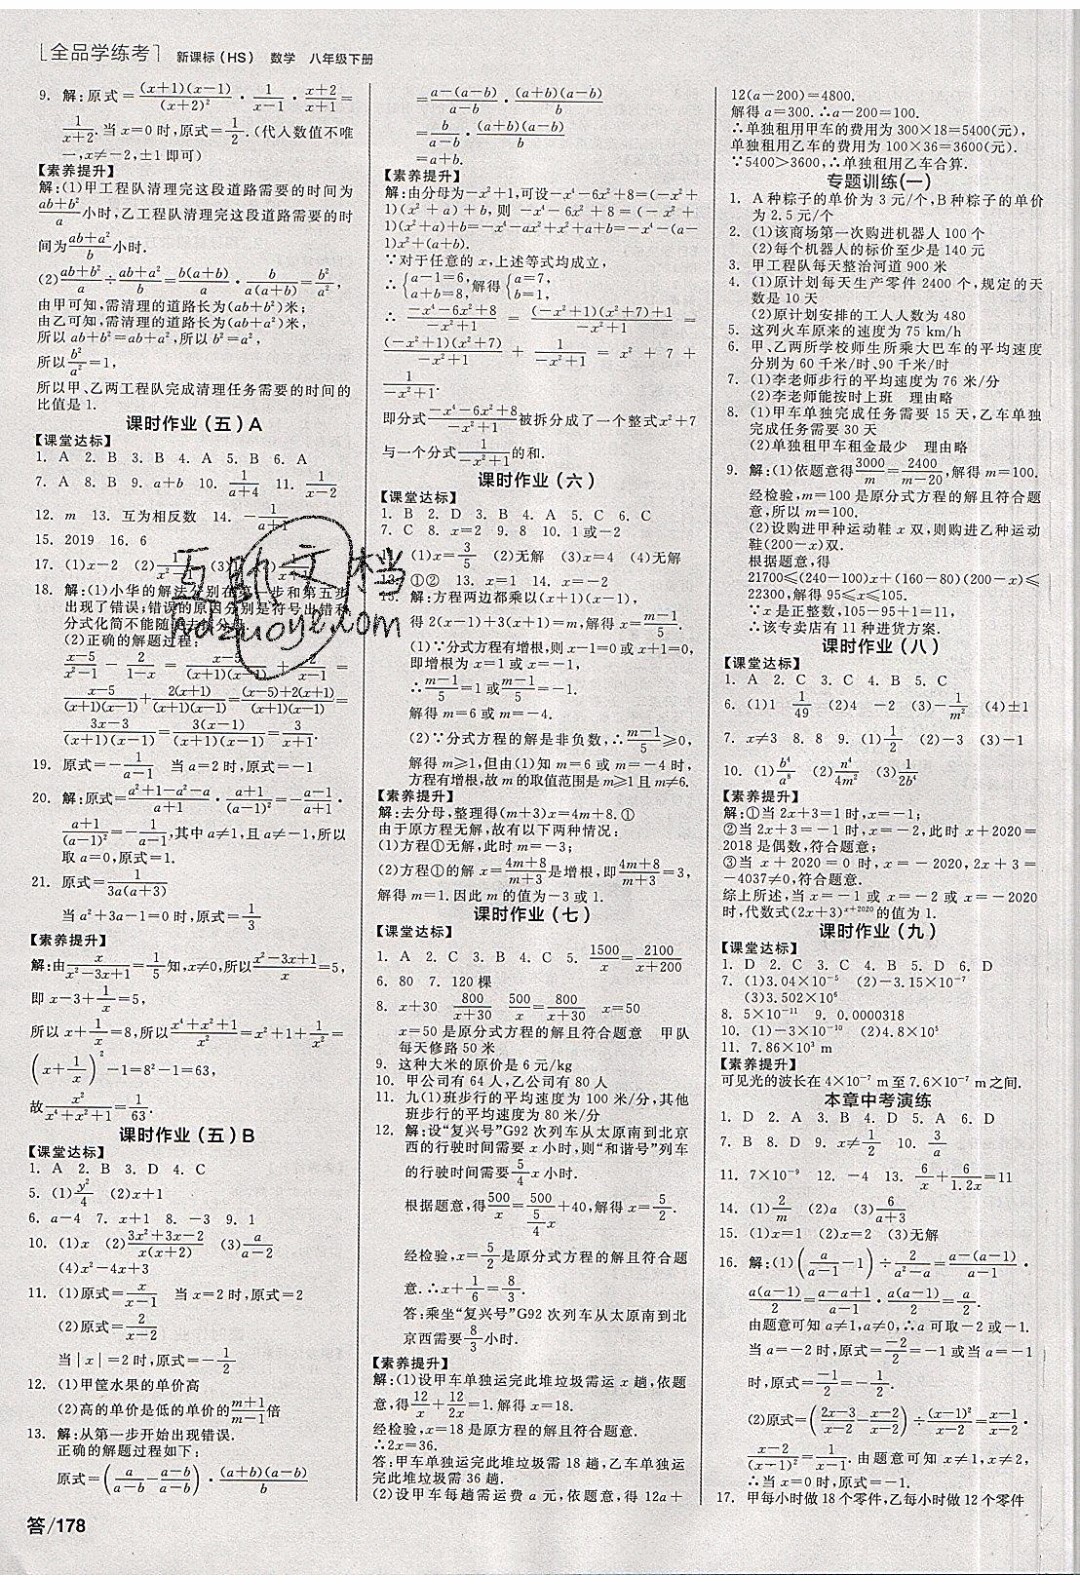 [全品学练考] 新课标(HS) 数学 八年级下册
9. 解:原式=(x+1)(x-1)/(x+2)²·1/(x-1)·(x+2)/(x+1)=
1/(x+2).当x=0时,原式=1/2.(代入数值不唯
一,x≠-2,±1即可)
【素养提升】
解:(1)甲工程队清理完这段道路需要的时间为
(ab+b²)/a小时,乙工程队清理完这段道路需要的时
间为(ab+a²)/b小时.
(2)(ab+b²)/a÷(ab+a²)/b=b(a+b)/a·b/a(a+b)=b²/a²,
由甲可知,需清理的道路长为(ab+b²)米;
由乙可知,需清理的道路长为(ab+a²)米,
所以ab+b²=ab+a²,所以b²=a²,
所以b²/a²=1,
所以甲、乙两工程队完成清理任务需要的时间的
比值是1.
课时作业(五)A
【课堂达标】
1. A 2. B 3. B 4. A 5. B 6. A
7. A 8. B 9. a+b 10. 1/(a+4) 11. 1/(x-2)
12. m 13. 互为相反数 14. -1/(a+1)
15. 2019 16. 6
17. (1)x-2 (2)
18. 解:(1)小华的解法分别在第 步和第五步
出现了错误;错误的原因分别是符号出错和
分式化简不能随
(2)正确的解题过程:
(x-5)/(x²-1)-2/(1-x)=(x-5)/(x+1)(x-1)
(x-5)/(x+1)(x-1)+2(x+1)/(x+1)(x-1)=((x-5)+2(x+1))/(x+1)(x-1)=
(3x-3)/(x+1)(x-1)=3(x-1)/(x+1)(x-1)=3/(x+1).
19. 原式=-1/(a-1) 当a=2时,原式=-1
20. 解:原式=(a²+1-a²-a)/(a+1)·(a+1)/(a-1)²=-(a-1)/(a+1)·
(a+1)/(a-1)²=-1/(a-1),其中a≠1,且a≠-1,所以
取a=0,原式=1.
21. 原式=1/3a(a+3)
当a²+3a-1=0时,原式=1/3
【素养提升】
解:由x/(x²-3x+1)=1/5知,x≠0,所以(x²-3x+1)/x=5,
即x-3+1/x=5,
所以x+1/x=8,所以(x⁴+x²+1)/x²=x²+1+1/x²=
(x+1/x)²-1=8²-1=63,
故x²/(x⁴+x²+1)=1/63.
课时作业(五)B
【课堂达标】
1. A 2. B 3. D 4. C
5. (1)y²/4 (2)x+1
6. a-4 7. x+1 8. -3 9. 1
10. (1)x (2)(3x²+3x-2)/x(x+2) (3)a/(a-2)
(4)x²-4x+3
11. (1)原式=x/(x-1) 当x=2时,原式=2
(2)原式=2/(x-2)
当|x|=2时,原式=-1/2
12. (1)甲筐水果的单价高
(2)高的单价是低的单价的(m+1)/(m-1)倍
13. 解:从第一步开始出现错误.
正确的解题过程如下:
原式=(a/(a-b)-(a-b)/(a-b))·(a+b)(a-b)/b
答/178
=(a-(a-b))/(a-b)·(a+b)(a-b)/b
=b/(a-b)·(a+b)(a-b)/b
=a+b.
【素养提升】
解:由分母为-x²+1,可设-x⁴-6x²+8=(-x²+
1)(x²+a)+b,则-x⁴-6x²+8=(-x²+
1)(x²+a)+b=-x⁴-ax²+x²+a+b=-x⁴-(a-
1)x²+(a+b).
∵对于任意的x,上述等式均成立,
∴{a-1=6,a+b=8,解得{a=7,b=1,
∴(-x⁴-6x²+8)/(-x²+1)=((-x²+1)(x²+7)+1)/(-x²+1)=
(-x²+1)(x²+7)/(-x²+1)+1/(-x²+1)=x²+7+
1/(-x²+1).
即分式(-x⁴-6x²+8)/(-x²+1)被拆分成了一个整式x²+7
与一个分式1/(-x²+1)的和.
课时作业(六)
【课堂达标】
1. B 2. D 3. B 4. A 5. C 6. C
7. C 8. x=2 9. 8 10. 1或-2
(1)x=3/5 (2)无解 (3)x=4 (4)无解
①② 13. x=1 14. x=-2
15. 解:方程两边都乘以(x+1)(x-1),
得2(x-1)+3(x+1)=m,解得x=(m-1)/5.
(1)∵分式方程有增根,则x-1=0或x+1=0,
即增根为x=1或x=-1,
∴(m-1)/5=1或(m-1)/5=-1,
解得m=6或m=-4.
(2)∵分式方程的解是非负数,∴(m-1)/5≥0,
解得m≥1,但由(1)知m=6或m=-4时,
方程有增根,故m的取值范围是m≥1且m≠6.
【素养提升】
解:去分母,整理得(m+3)x=4m+8.①
由于原方程无解,故有以下两种情况:
(1)方程①无解,此时m=-3;
(2)方程①的解x=(4m+8)/(m+3)是增根,即(4m+8)/(m+3)=3,
解得m=1.因此m的值为-3或1.
课时作业(七)
【课堂达标】
1. A 2. C 3. C 4. C 5. 1500/x=2100/(x+200)
6. 80 7. 120棵
8. x+30 800/(x+30) 500/x=800/(x+30) x=50
x=50是原分式方程的解且符合题意 甲队
每天修路50米
9. 这种大米的原价是6元/kg
10. 甲公司有64人,乙公司有80人
11. 九(1)班步行的平均速度为100米/分,其他
班步行的平均速度为80米/分
12. 解:设“复兴号”G92次列车从太原南到北京
西的行驶时间需要x小时,则“和谐号”列车
的行驶时间需要5/4x小时.
根据题意,得500/x=500/(5/4x)+40,解得x=5/2.
经检验,x=5/2是原分式方程的解且符合题
意.∴x+1/6=8/3.
答:乘坐“复兴号”G92次列车从太原南到北
京西需要8/3小时.
【素养提升】
解:(1)设甲车单独运完此堆垃圾需运x趟,依题
意,得12/x+12/2x=1.解得x=18.
经检验,x=18是原方程的解且符合题意.
∴2x=36.
答:甲车单独运完此堆垃圾需18趟,乙车单独运
完此堆垃圾需36趟.
(2)设甲车每趟需运费a元,依题意,得12a+
12(a-200)=4800.
解得a=300.∴a-200=100.
∴单独租用甲车的费用为300×18=5400(元),
单独租用乙车的费用为100×36=3600(元).
∵5400>3600,∴单独租用乙车合算.
专题训练(一)
1. A种粽子的单价为3元/个,B种粽子的单价
为2.5元/个
2. (1)该商场第一次购进机器人100个
(2)每个机器人的标价至少是140元
3. 甲工程队每天整治河道900米
4. (1)原计划每天生产零件2400个,规定的天
数是10天
(2)原计划安排的工人人数为480
5. 这列火车原来的速度为75 km/h
6. 甲、乙两所学校师生所乘大巴车的平均速度
分别为60千米/时、90千米/时
7. (1)李老师步行的平均速度为76米/分
(2)李老师能按时上班 理由略
8. (1)甲车单独完成任务需要15天,乙车单独
完成任务需要30天
(2)单独租甲车租金最少 理由略
9. 解:(1)依题意得3000/m=2400/(m-20),解得m=100.
经检验,m=100是原分式方程的解且符合题
意,所以m=100.
(2)设购进甲种运动鞋x双,则购进乙种运动
鞋(200-x)双.
根据题意,得
21700≤(240-100)x+(160-80)(200-x)≤
22300,解得95≤x≤105.
∵x是正整数,105-95+1=11,
∴该专卖店有11种进货方案.
课时作业(八)
【课堂达标】
1. A 2. C 3. C 4. B 5. C
6. (1)1 1/49 (2)4 -2 (3)-1/m² (4)±1
7. x≠3 8. 8 9. (1)1/2 (2)-3 (3)-1
10. (1)b⁴/a⁸ (2)n⁴/4m² (3)1/2b⁴
【素养提升】
解:①当2x+3=1时,x=-1;
②当2x+3=-1时,x=-2,此时x+2020=
2018是偶数,符合题意;
③当x+2020=0时,x=-2020,2x+3=
-4037≠0,符合题意.
综上所述,当x=-1或x=-2或x=-2020
时,代数式(2x+3)ˣ⁺²⁰²⁰的值为1.
课时作业(九)
【课堂达标】
1. D 2. C 3. C 4. B 5. D 6. D
7. (1)3.04×10⁻⁵ (2)-3.15×10⁻⁷
(3)3.502×10⁶
8. 5×10⁻¹¹ 9. 0.0000318
10. (1)-3×10⁻¹⁰ (2)4.8×10⁵
11. 7.86×10³ m
【素养提升】
可见光的波长在4×10⁻⁷ m至7.6×10⁻⁷ m之间.
本章中考演练
1. D 2. A 3. B 4. D 5. A 6. D
7. B 8. D 9. x≠1/2 10. 3/a
11. 7×10⁻⁹ 12. -4 13. 6/x+6/1.2x=11
14. (1)2/m (2)a (3)6/(a+3)
15. (1)x=1 (2)x=2 (3)无解
16. 解:(1)(a/(a-1)-1)÷2/(a²-a)=(a-(a-1))/(a-1)·
a(a-1)/2=(a-a+1)/(a-1)·a(a-1)/2=a/2.
由题意可知a≠1,a≠0,∴a可取-2或-1.
当a=-2时,原式=-2/2=-1或当a=-1
时,原式=-1/2=-1/2.
(2)原式=((2x-3)/(x-2)-(x-2)/(x-2))÷(x-1)²/(x-2)=(x-1)/(x-2)·
(x-2)/(x-1)²=1/(x-1).由题意可知x≠1,x≠2,
∴当x=0时,原式=-1.
17. 甲每小时做18个零件,乙每小时做12个零件
互助文档